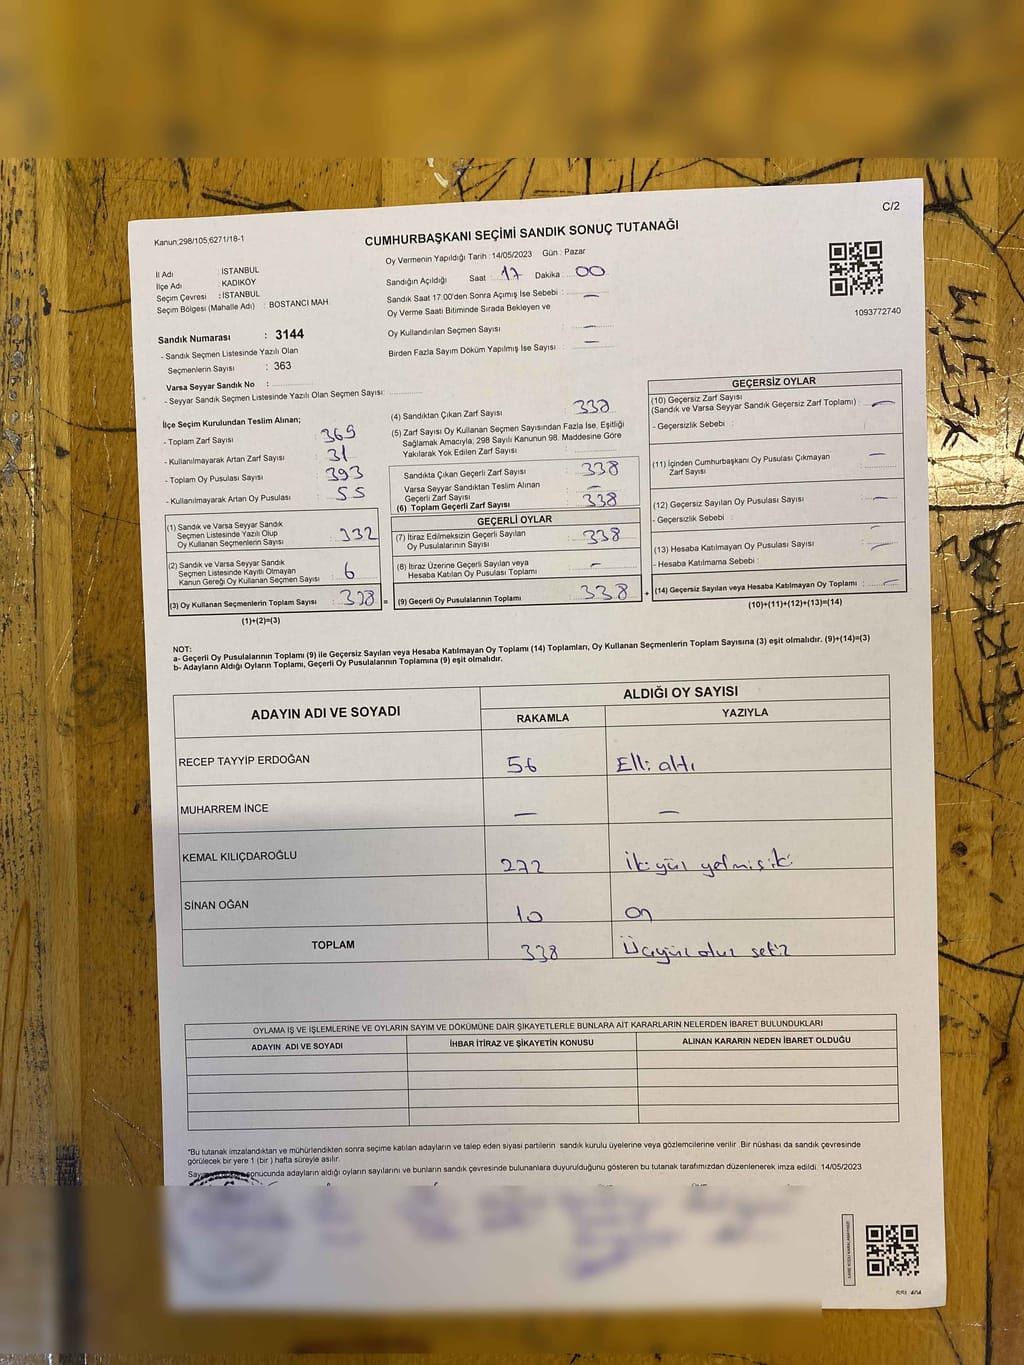 C/2
Kanun;298/105,6271/18-1
CUMHURBAŞKANI SEÇİMİ SANDIK SONUÇ TUTANAĞI
Oy Vermenin Yapıldığı Tarih :14/05/2023 Gün : Pazar
İl Adı : İSTANBUL
İlçe Adı : KADIKÖY
Seçim Çevresi : İSTANBUL
Seçim Bölgesi (Mahalle Adı) : BOSTANCI MAH.
Sandığın Açıldığı Saat : 17 Dakika : 00
Sandık Saat 17.00'den Sonra Açımış İse Sebebi : —
Oy Verme Saati Bitiminde Sırada Bekleyen ve
Oy Kullandırılan Seçmen Sayısı : —
Birden Fazla Sayım Döküm Yapılmış İse Sayısı : —
1093772740
Sandık Numarası : 3144
- Sandık Seçmen Listesinde Yazılı Olan
Seçmenlerin Sayısı : 363
Varsa Seyyar Sandık No :
- Seyyar Sandık Seçmen Listesinde Yazılı Olan Seçmen Sayısı:
İlçe Seçim Kurulundan Teslim Alınan;
- Toplam Zarf Sayısı : 369
- Kullanılmayarak Artan Zarf Sayısı : 31
- Toplam Oy Pusulası Sayısı : 393
- Kullanılmayarak Artan Oy Pusulası : 55
(1) Sandık ve Varsa Seyyar Sandık
Seçmen Listesinde Yazılı Olup
Oy Kullanan Seçmenlerin Sayısı : 332
(2) Sandık ve Varsa Seyyar Sandık
Seçmen Listesinde Kayıtlı Olmayan
Kanun Gereği Oy Kullanan Seçmen Sayısı : 6
(3) Oy Kullanan Seçmenlerin Toplam Sayısı : 338 =
(1)+(2)=(3)
(4) Sandıktan Çıkan Zarf Sayısı : 338
(5) Zarf Sayısı Oy Kullanan Seçmen Sayısından Fazla İse, Eşitliği
Sağlamak Amacıyla; 298 Sayılı Kanunun 98. Maddesine Göre
Yakılarak Yok Edilen Zarf Sayısı :
Sandıkta Çıkan Geçerli Zarf Sayısı : 338
Varsa Seyyar Sandıktan Teslim Alınan
Geçerli Zarf Sayısı : —
(6) Toplam Geçerli Zarf Sayısı : 338
GEÇERLİ OYLAR
(7) İtiraz Edilmeksizin Geçerli Sayılan
Oy Pusulalarının Sayısı : 338
(8) İtiraz Üzerine Geçerli Sayılan veya
Hesaba Katılan Oy Pusulası Toplamı : —
(9) Geçerli Oy Pusulalarının Toplamı : 338 +
GEÇERSİZ OYLAR
(10) Geçersiz Zarf Sayısı
(Sandık ve Varsa Seyyar Sandık Geçersiz Zarf Toplamı) : —
- Geçersizlik Sebebi :
(11) İçinden Cumhurbaşkanı Oy Pusulası Çıkmayan
Zarf Sayısı : —
(12) Geçersiz Sayılan Oy Pusulası Sayısı : —
- Geçersizlik Sebebi :
(13) Hesaba Katılmayan Oy Pusulası Sayısı : —
- Hesaba Katılmama Sebebi :
(14) Geçersiz Sayılan veya Hesaba Katılmayan Oy Toplamı : —
(10)+(11)+(12)+(13)=(14)
NOT:
a- Geçerli Oy Pusulalarının Toplamı (9) ile Geçersiz Sayılan veya Hesaba Katılmayan Oy Toplamı (14) Toplamları, Oy Kullanan Seçmenlerin Toplam Sayısına (3) eşit olmalıdır. (9)+(14)=(3)
b- Adayların Aldığı Oyların Toplamı, Geçerli Oy Pusulalarının Toplamına (9) eşit olmalıdır.
ADAYIN ADI VE SOYADI
ALDIĞI OY SAYISI
RAKAMLA YAZIYLA
RECEP TAYYİP ERDOĞAN 56 Elli altı
MUHARREM İNCE — —
KEMAL KILIÇDAROĞLU 272 İkiyüz yetmişiki
SİNAN OĞAN 10 On
TOPLAM 338 Üçyüz otuz sekiz
OYLAMA İŞ VE İŞLEMLERİNE VE OYLARIN SAYIM VE DÖKÜMÜNE DAİR ŞİKAYETLERLE BUNLARA AİT KARARLARIN NELERDEN İBARET BULUNDUKLARI
ADAYIN ADI VE SOYADI İHBAR İTİRAZ VE ŞİKAYETİN KONUSU ALINAN KARARIN NEDEN İBARET OLDUĞU
*Bu tutanak imzalandıktan ve mühürlendikten sonra seçime katılan adayların ve talep eden siyasi partilerin sandık kurulu üyelerine veya gözlemcilerine verilir .Bir nüshası da sandık çevresinde
görülecek bir yere 1 (bir ) hafta süreyle asılır.
sonucunda adayların aldığı oyların sayılarını ve bunların sandık çevresinde bulunanlara duyurulduğunu gösteren bu tutanak tarafımızdan düzenlenerek imza edildi. 14/05/2023
YEŞİM